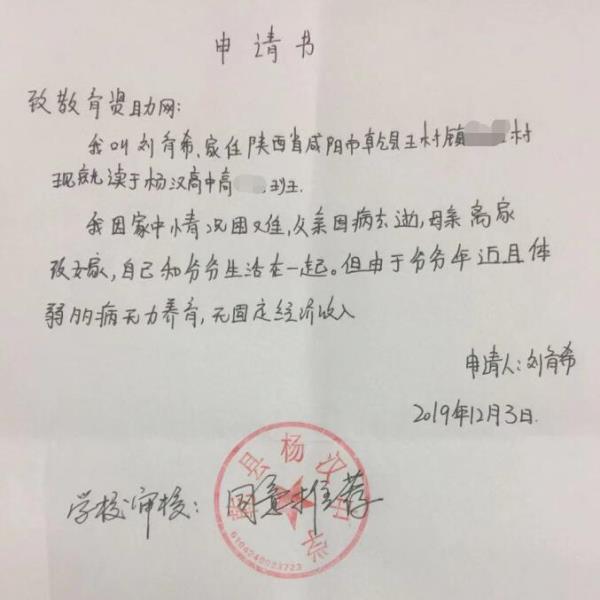 申请书
致教育资助网:
我叫刘育希,家住陕西省咸阳市乾县王村镇村
现就读于杨汉高中高班.
我因家中情况困难,父亲因病去逝,母亲离家
改嫁,自己和爷爷生活在一起。但由于爷爷年近且体
弱多病无力养育,无固定经济收入
申请人:刘育希
2019年12月3日.
学校审核:同意推荐
乾县杨汉中学
6104240023723